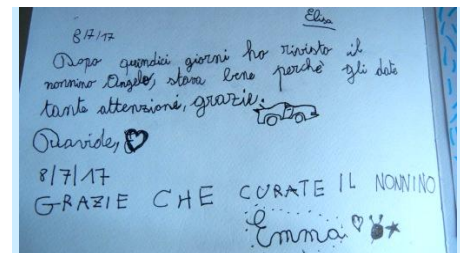 Elisa
8/7/17
Dopo quindici giorni ho rivisto il
nonnino Angelo, stava bene perchè gli date
tante attenzioni, grazie.
Davide,
8/7/17
GRAZIE CHE CURATE IL NONNINO
Emma